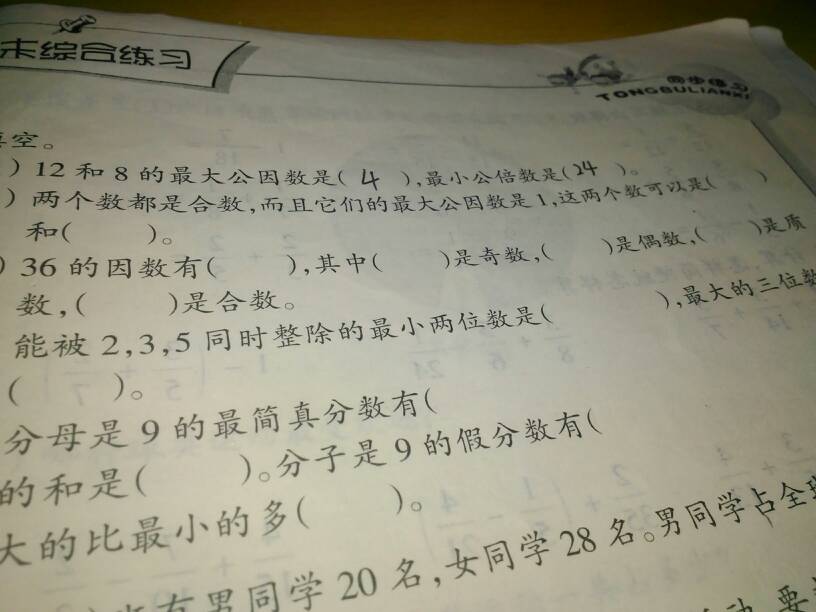 末综合练习
同步练习
TONGBULIANXI
填空。
)12和8的最大公因数是( 4 ),最小公倍数是(24 )。
)两个数都是合数,而且它们的最大公因数是1,这两个数可以是( )
和( )。
)36的因数有( ),其中( )是奇数,( )是偶数,( )是质
数,( )是合数。
能被2,3,5同时整除的最小两位数是( ),最大的三位数
( )。
分母是9的最简真分数有(
的和是( )。分子是9的假分数有(
大的比最小的多( )。
有男同学20名,女同学28名。男同学占全班